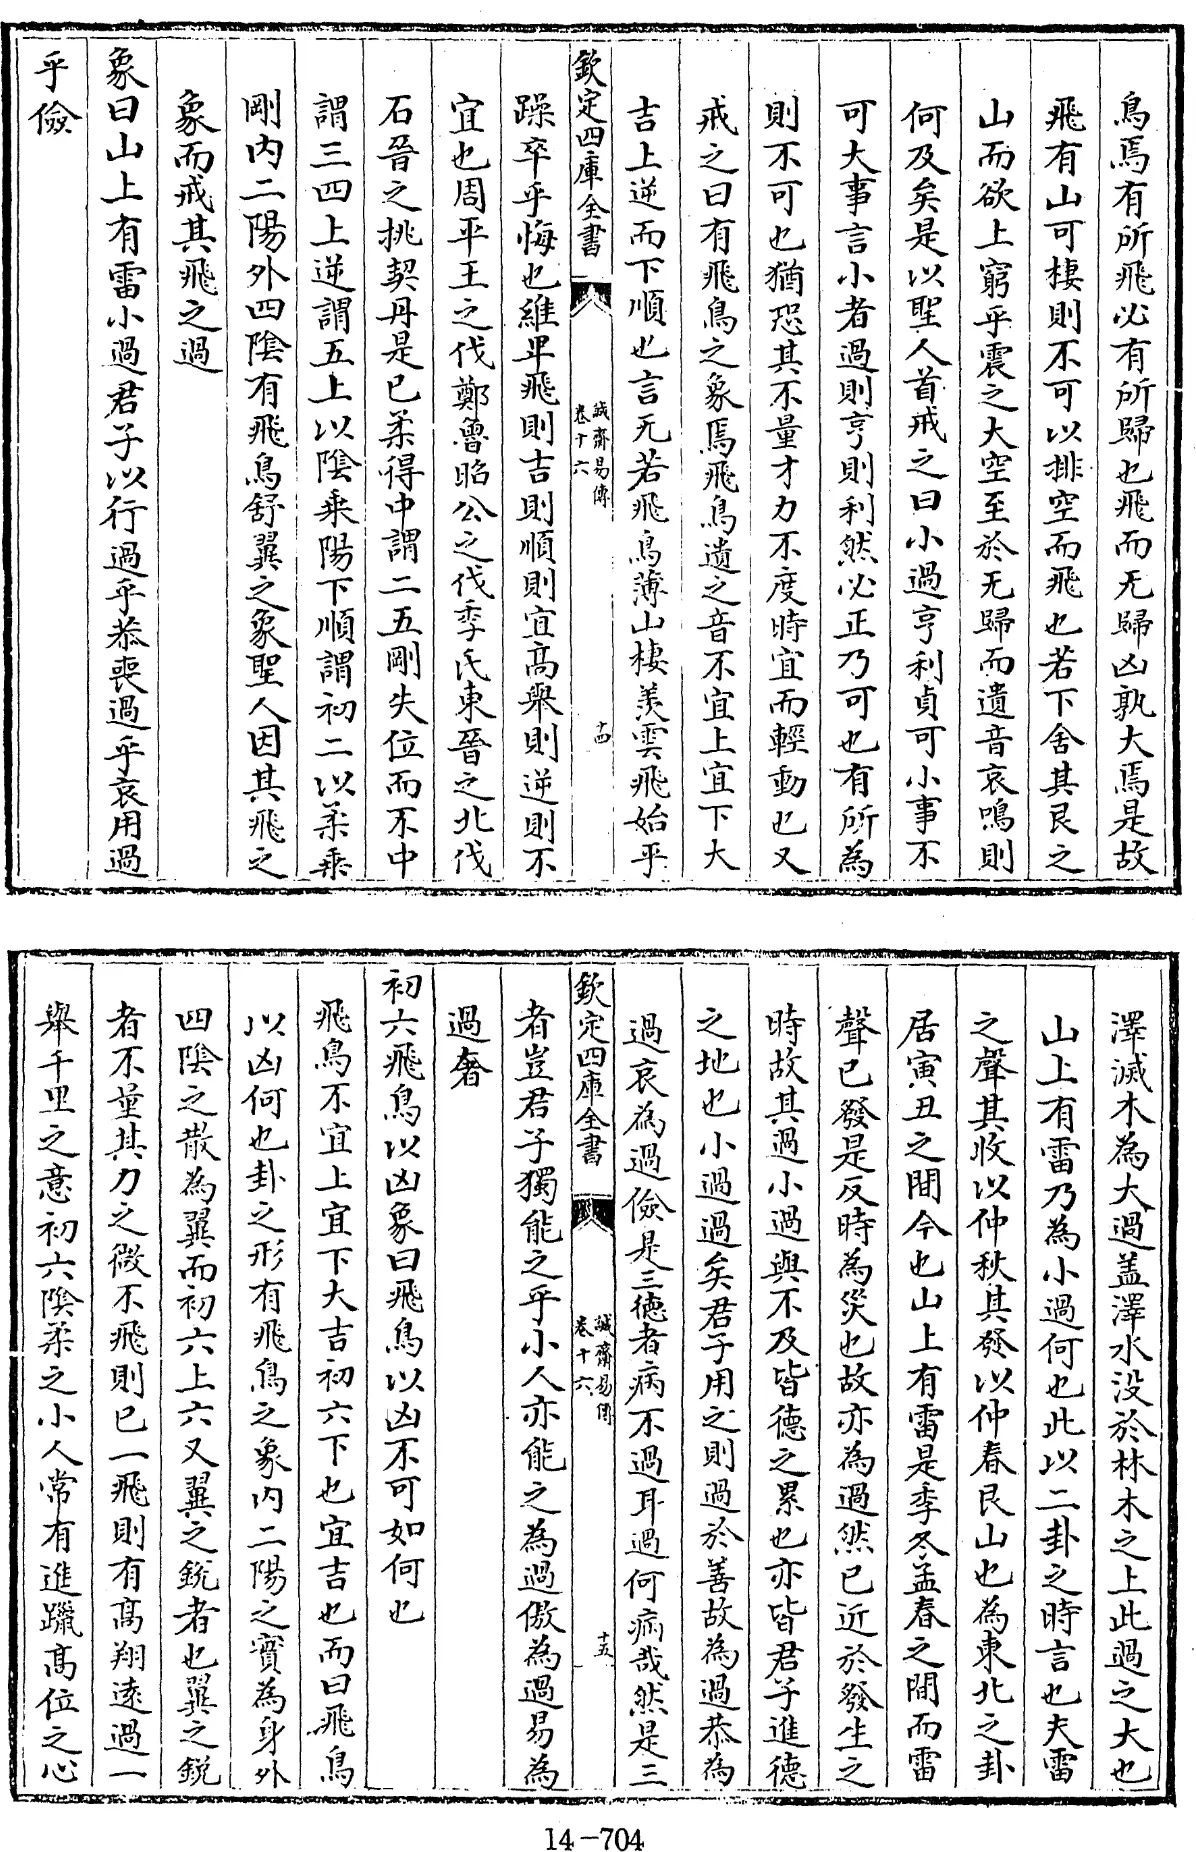 鳥焉有所飛必有所歸也飛而无歸凶孰大焉是故
飛有山可棲則不可以排空而飛也若下舍其艮之
山而欲上窮乎震之大空至於无歸而遺音哀鳴則
何及矣是以聖人首戒之曰小過亨利貞可小事不
可大事言小者過則亨則利然必正乃可也有所為
則不可也猶恐其不量才力不度時宜而輕動也又
戒之曰有飛鳥之象焉飛鳥遺之音不宜上宜下大
吉上逆而下順也言无若飛鳥薄山棲羨雲飛始乎
欽定四庫全書
誠齋易傳
卷十六
十四
躁卒乎悔也維卑飛則吉則順則宜高舉則逆則不
宜也周平王之伐鄭魯昭公之伐季氏東晉之北伐
石晉之挑契丹是已柔得中謂二五剛失位而不中
謂三四上逆謂五上以陰乘陽下順謂初二以柔乘
剛内二陽外四陰有飛鳥舒翼之象聖人因其飛之
象而戒其飛之過
象曰山上有雷小過君子以行過乎恭喪過乎哀用過
乎儉
澤滅木為大過盖澤水没於林木之上此過之大也
山上有雷乃為小過何也此以二卦之時言也夫雷
之聲其收以仲秋其發以仲春艮山也為東北之卦
居寅丑之間今也山上有雷是季冬孟春之間而雷
聲已發是反時為災也故亦為過然已近於發生之
時故其過小過與不及皆德之累也亦皆君子進德
之地也小過過矣君子用之則過於善故為過恭為
過哀為過儉是三德者病不過耳過何病哉然是三
欽定四庫全書
誠齋易傳
卷十六
十五
者豈君子獨能之乎小人亦能之為過傲為過易為
過奢
初六飛鳥以凶象曰飛鳥以凶不可如何也
飛鳥不宜上宜下大吉初六下也宜吉也而曰飛鳥
以凶何也卦之形有飛鳥之象内二陽之實為身外
四陰之散為翼而初六上六又翼之銳者也翼之銳
者不量其力之微不飛則已一飛則有高翔遠過一
舉千里之意初六陰柔之小人常有進躐高位之心
14-704